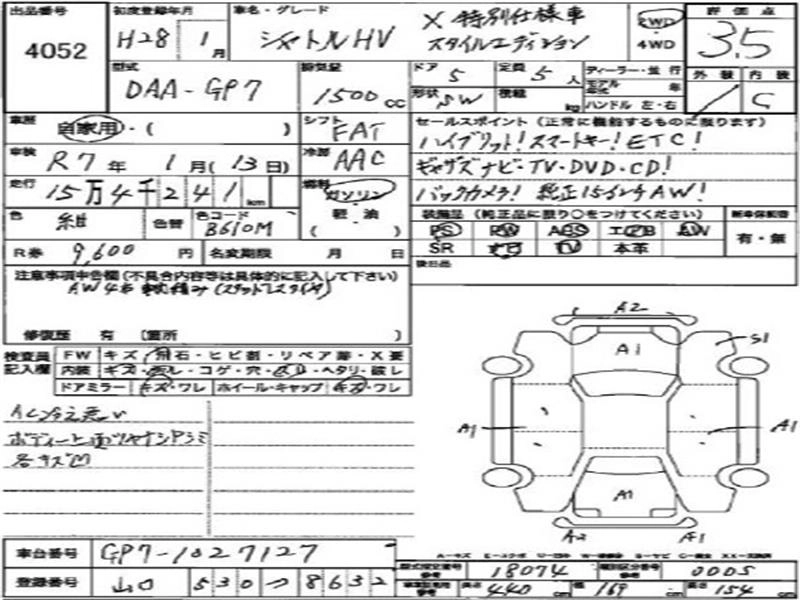 出品番号 4052
初度登録年月 H28 1月
車名・グレード シャトルHV X 特別仕様車 スタイルエディション
2WD 4WD
評価点 3.5
型式 DAA-GP7
排気量 1500cc
ドア 5 定員 5人
ディーラー・並行
モデル年式 年
外装 内装 C
形状 SW 積載 kg
ハンドル 左・右
車歴 自家用・( )
シフト FAT
セールスポイント(正常に機能するものに限ります)
ハイブリット!スマートキー!ETC!
車検 R7年 1月(13日)
冷房 AAC
ギャザズナビ・TV・DVD・CD!
走行 15万4千241km
燃料 ガソリン 軽油 ( )
バックカメラ! 純正15インチAW!
色 紺 色替 色コード B610M
装備品(純正品に限り○をつけてください)
PS PW ABS エアB AW 有・無
SR ナビ TV 本革
R券 9,600円 名変期限 月 日
後日品
注意事項申告欄(不具合内容等は具体的に記入して下さい)
AW4本 積み(スタッドレスタイヤ)
修復歴 有 (箇所 )
検査員記入欄 FW キズ・飛石・ヒビ割・リペア跡・X要
内装 キズ・汚レ・コゲ・穴・スレ・ヘタリ・破レ
ドアミラー キズ・ワレ ホイール・キャップ キズ・ワレ
A2
A1
S1
AC冷え悪い
ボディー上面ツヤナシアリシミ
各キズ凹
A1 A1
A1
A2 A1
車台番号 GP7-1027127
A-キズ
型式指定番号 18074 類別区分番号 0005
登録番号 山口 530 つ 8632
長さ 440cm 幅 169cm 高さ 154cm